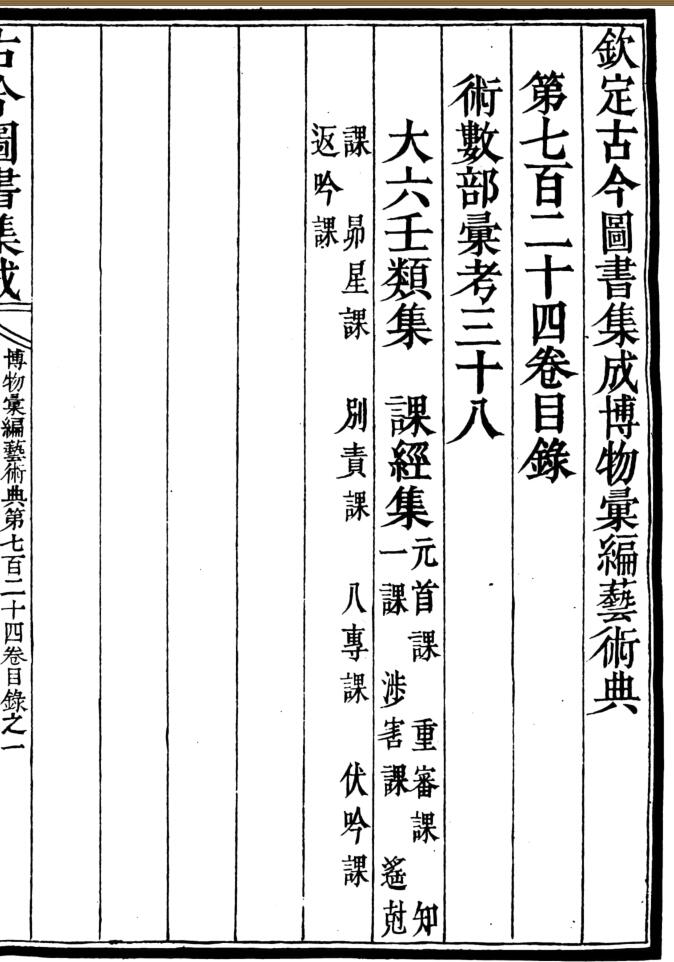 欽定古今圖書集成博物彙編藝術典
第七百二十四卷目錄
術數部彙考三十八
大六壬類集　課經集
元首課　重審課　知
一課　涉害課　遙尅
課　昴星課　別責課　八專課　伏吟課
返吟課
古今圖書集成
博物彙編藝術典第七百二十四卷目錄之一